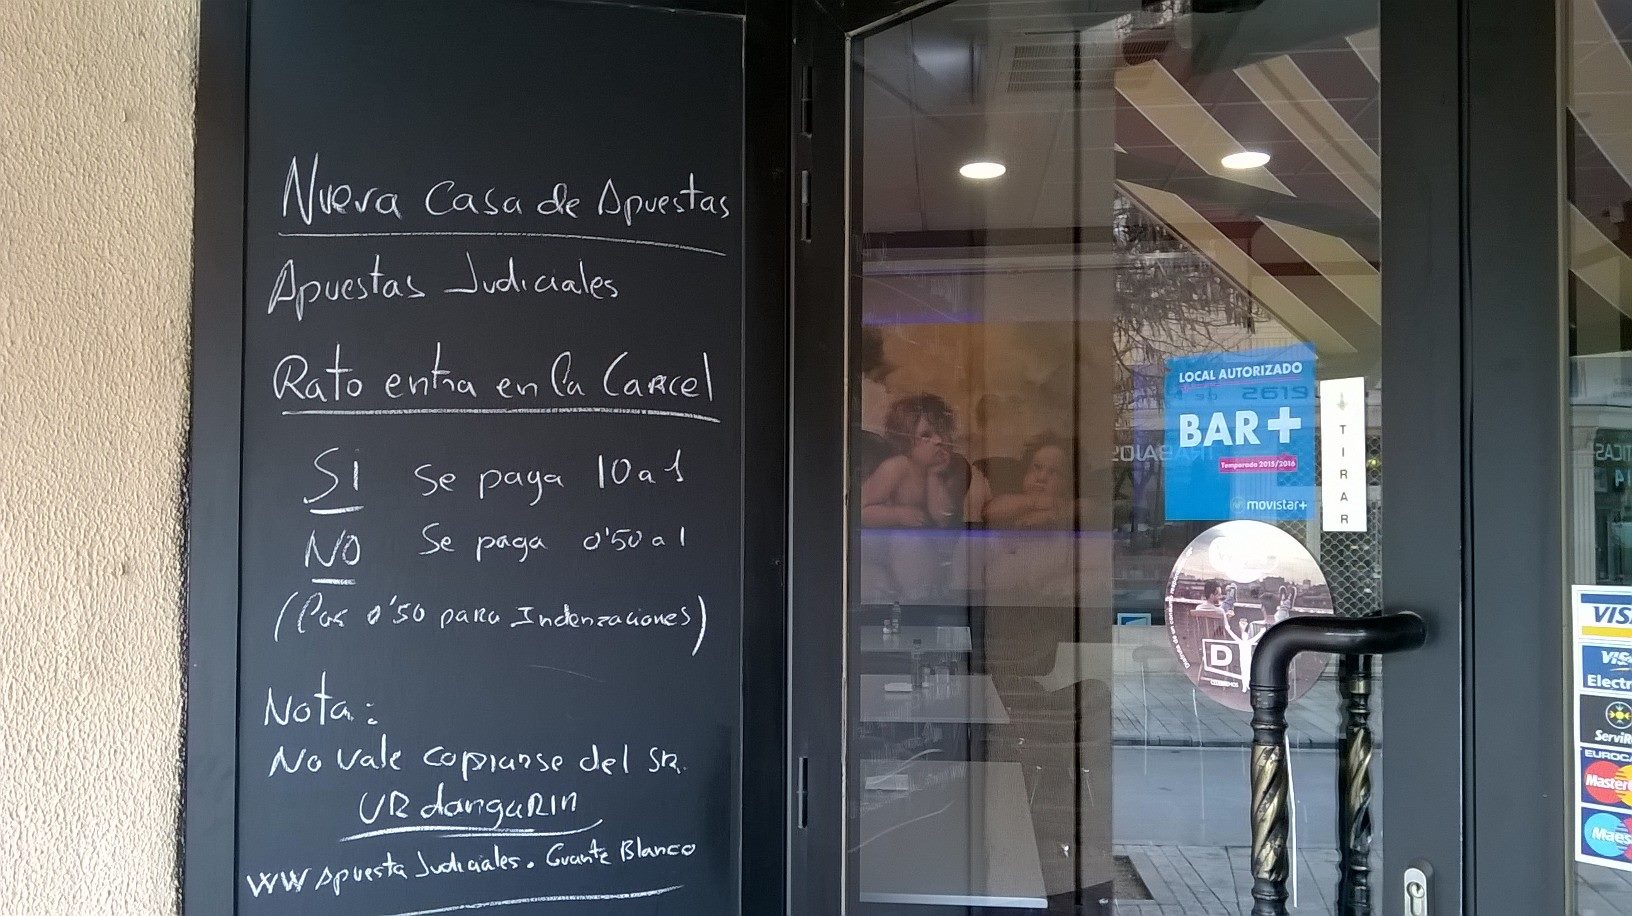 Nueva Casa de Apuestas
Apuestas Judiciales
Rato entra en la Carcel
SI se paga 10 a 1
NO Se paga 0'50 a 1
(Los 0'50 para Indenzaciones)
Nota:
No vale copiarse del SR.
URdangaRIn
WW Apuesta Judiciales. Guante Blanco
LOCAL AUTORIZADO
BAR+
Temporada 2015/2016
movistar+
TIRAR
D
VISA
VISA
Electr
ServiR
EUROCA
Master
Maes